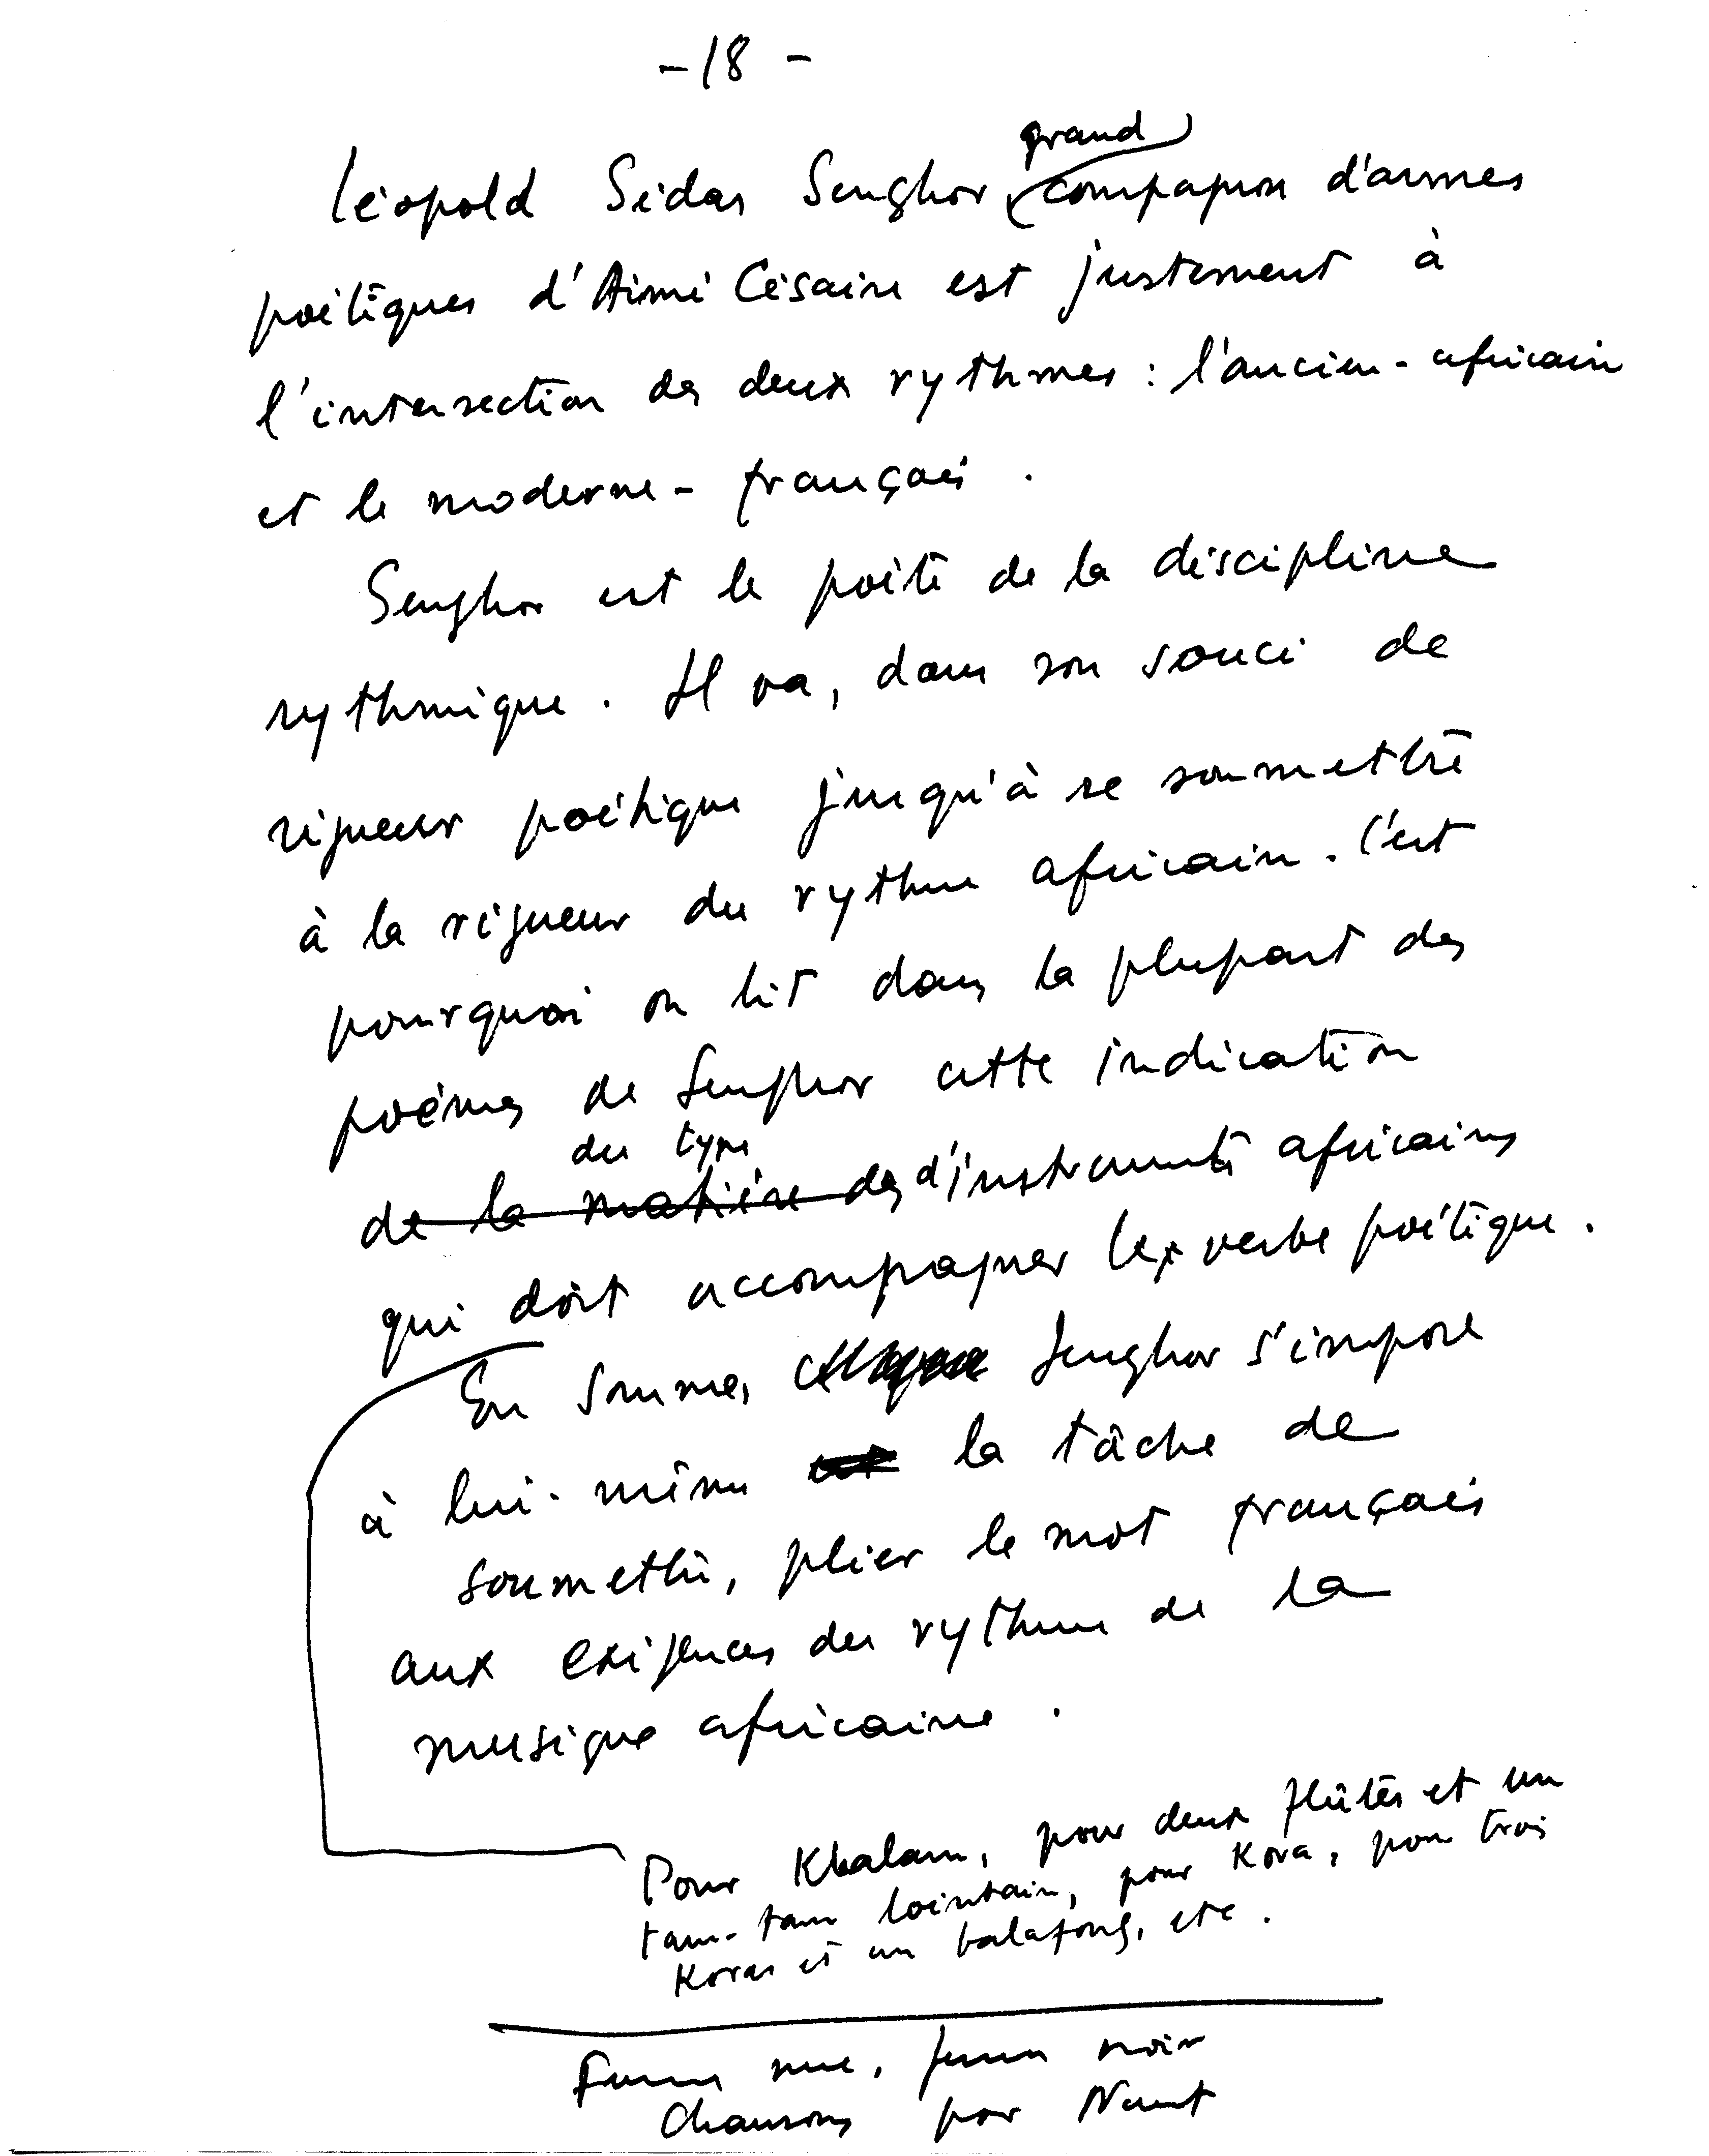 - 18 -
grand
Léopold Sédar Senghor compagnon d'armes
poétiques d'Aimé Césaire est justement à
l'intersection des deux rythmes : l'ancien - africain
et le moderne - français .
Senghor est le poète de la discipline
rythmique . Il va, dans son souci de
rigueur poétique jusqu'à se soumettre
à la rigueur du rythme africain . C'est
pourquoi on lit dans la plupart des
poèmes de Senghor cette indication
du type
de la matière des d'instruments africains
qui doit accompagner le verbe poétique .
En somme, Senghor s'impose
à lui-même la tâche de
soumettre, plier le mot français
aux exigences du rythme de la
musique africaine .
Pour Khalam, pour deux flûtes et un
tam-tam lointain, pour Kora, pour trois
Koras et un balafong, etc .
Femme nue, femme noire
Chansons pour